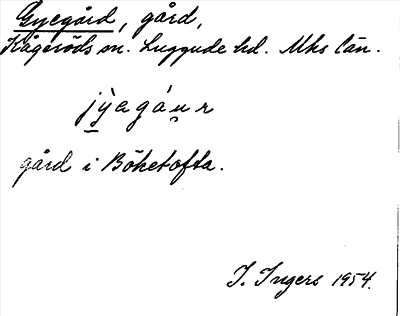 Gyegård, gård,
Kågeröds sn. Luggude hd. Mhs län.
jỳa gá u̯ r
gård i Böketofta.
I. Ingers 1954.